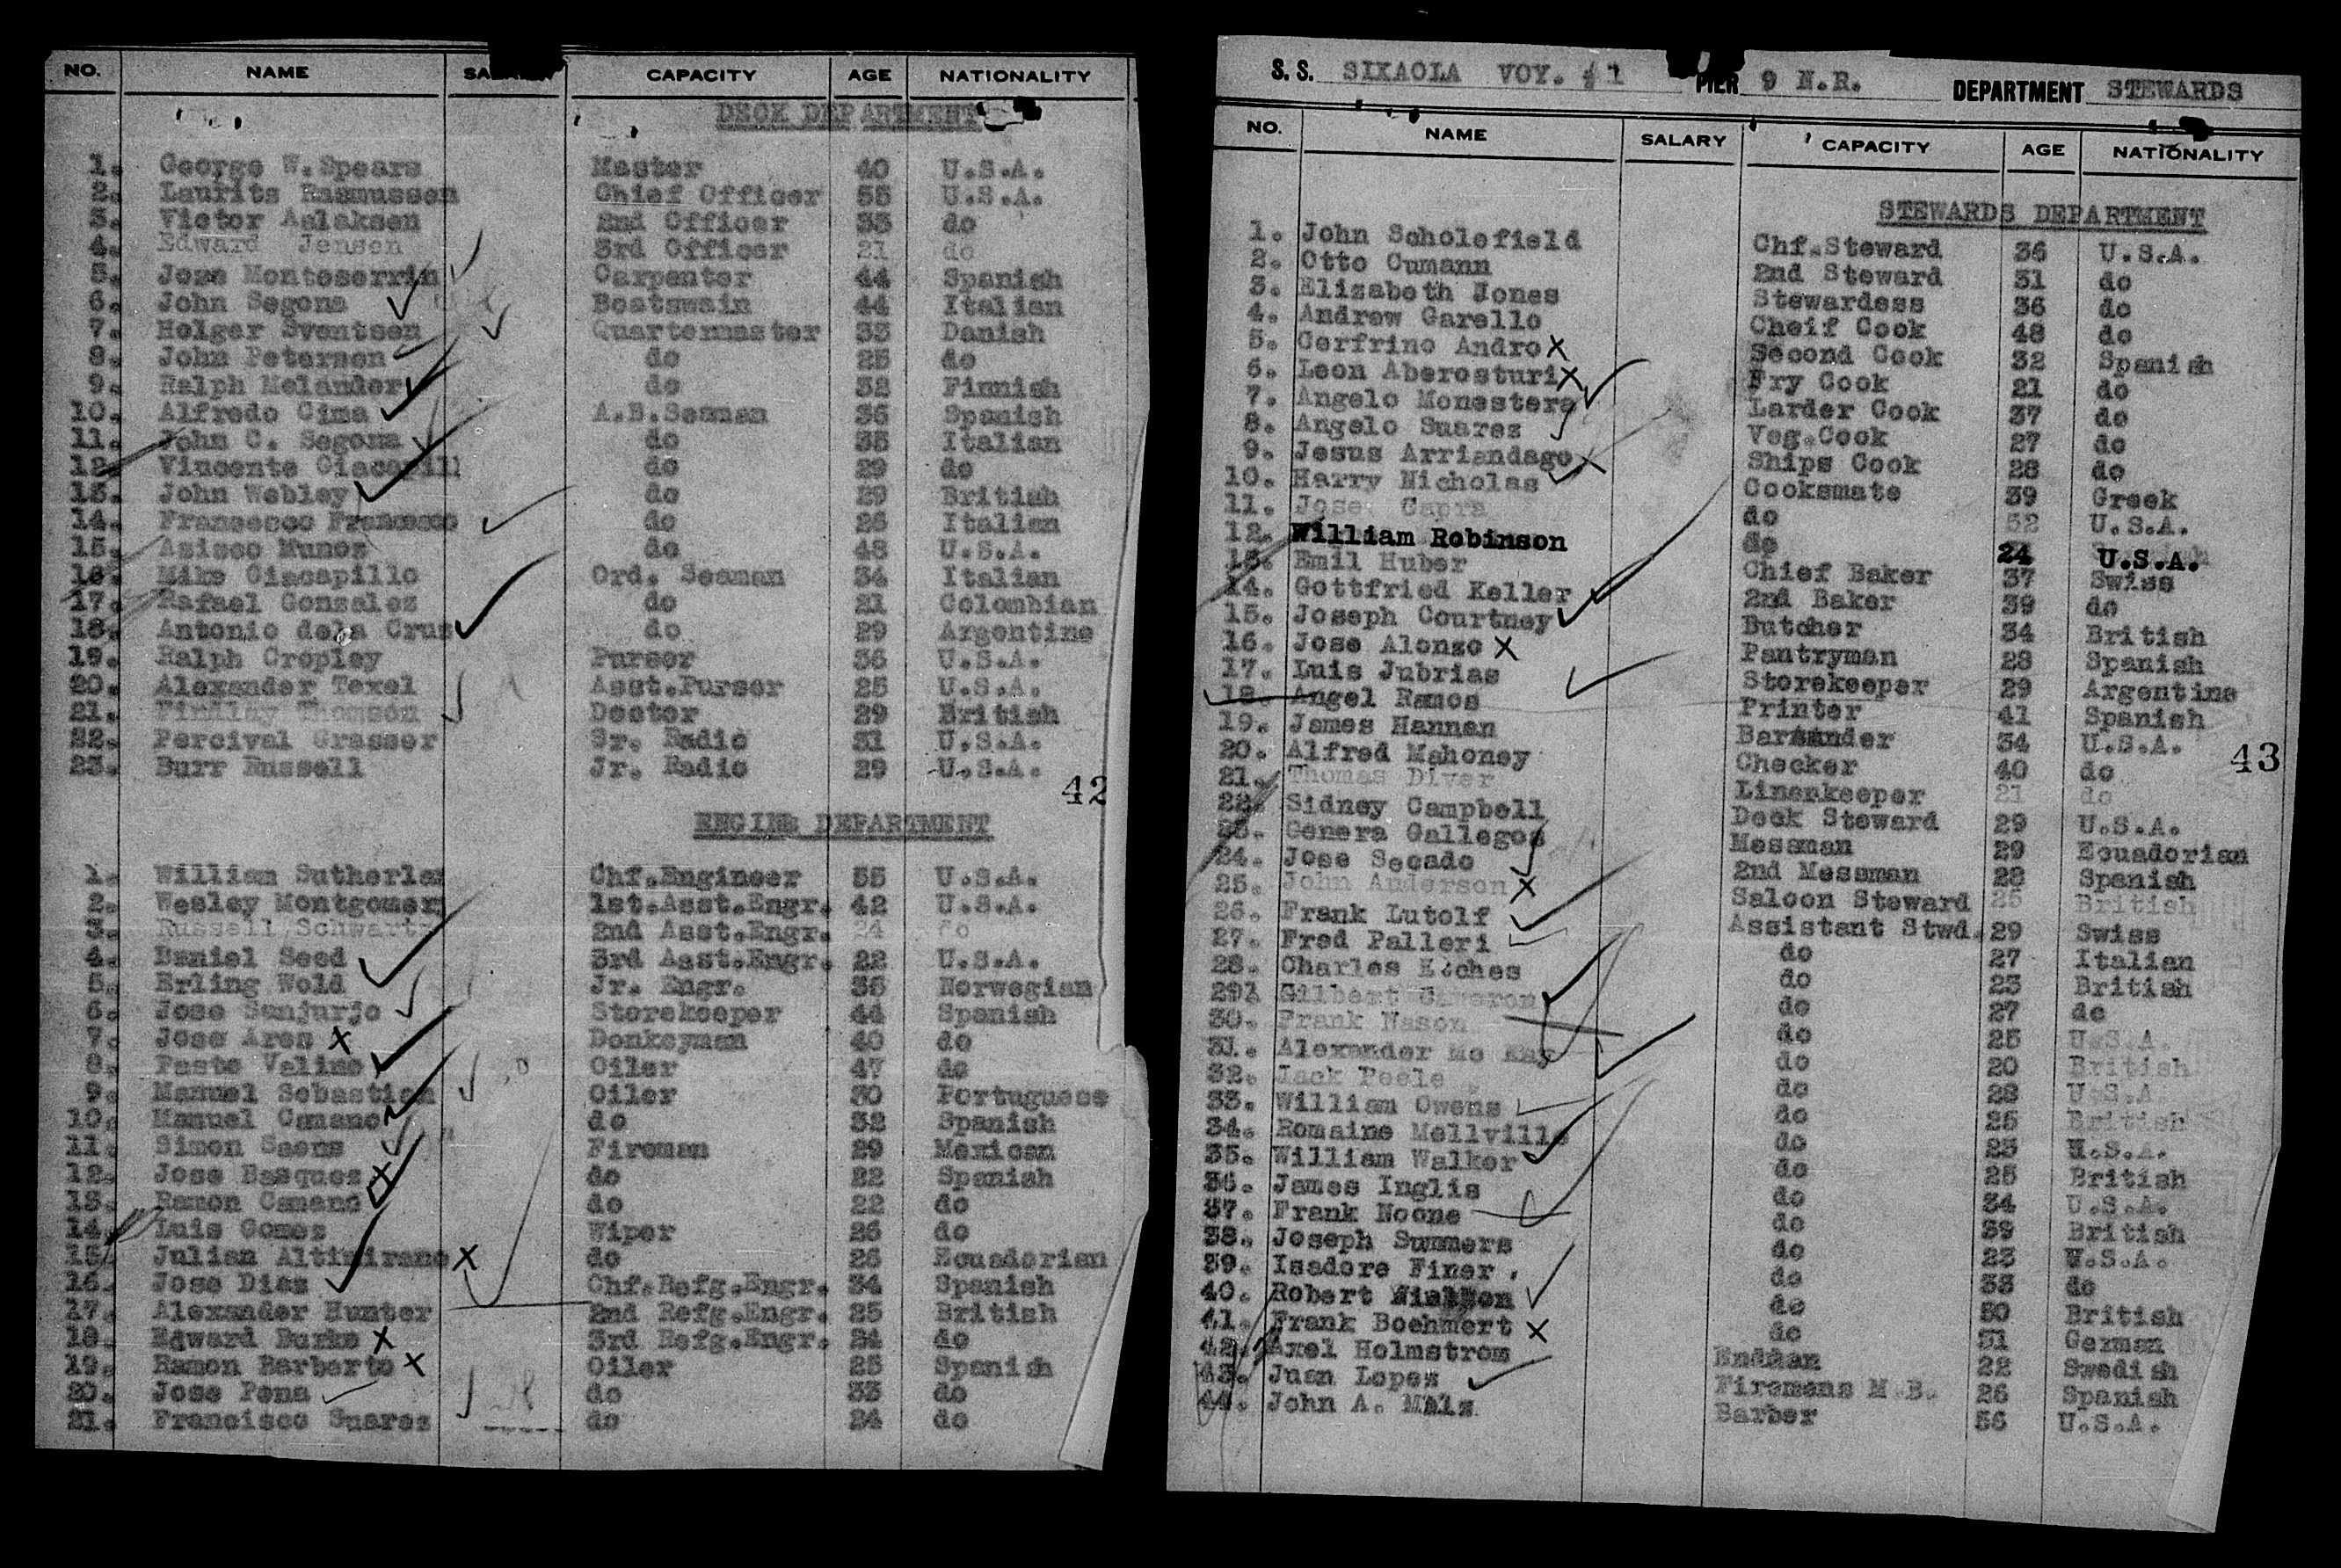 NO. NAME SALARY CAPACITY AGE NATIONALITY
DECK DEPARTMENT
1. George W. Spears Master 40 U.S.A.
2. Laurits Rasmussen Chief Officer 55 U.S.A.
3. Victor Aslaksen 2nd Officer 33 do
4. Edward Jensen 3rd Officer 21 do
5. Jose Monteserrin Carpenter 44 Spanish
6. John Segona Boatswain 44 Italian
7. Holger Sventsen Quartermaster 33 Danish
8. John Petersen do 25 do
9. Ralph Melander do 32 Finnish
10. Alfredo Cima A.B.Seaman 36 Spanish
11. John C. Segona do 35 Italian
12. Vincente Ciacapill do 29 do
13. John Webley do 29 British
14. Francesco Francesco do 26 Italian
15. Asisco Munoz do 48 U.S.A.
16. Mike Ciacapillo Ord. Seaman 34 Italian
17. Rafael Gonzales do 21 Colombian
18. Antonio dela Cruz do 29 Argentine
19. Ralph Cropley Purser 36 U.S.A.
20. Alexander Texel Asst.Purser 25 U.S.A.
21. Findlay Thomson Doctor 29 British
22. Percival Grasser Sr. Radio 31 U.S.A.
23. Burr Russell Jr. Radio 29 U.S.A.
42
ENGINE DEPARTMENT
1. William Sutherlan Chf.Engineer 55 U.S.A.
2. Wesley Montgomery 1st.Asst.Engr. 42 U.S.A.
3. Russell Schwartz 2nd Asst.Engr. 24 do
4. Daniel Seed 3rd Asst.Engr. 22 U.S.A.
5. Erling Wold Jr. Engr. 36 Norwegian
6. Jose Sanjurjo Storekeeper 44 Spanish
7. Jose Ares X Donkeyman 40 do
8. Pasto Valino Oiler 47 do
9. Manuel Sebastian Oiler 30 Portuguese
10. Manuel Camano do 32 Spanish
11. Simon Saens Fireman 29 Mexican
12. Jose Basques X do 22 Spanish
13. Ramon Camano do 22 do
14. Luis Gomez Wiper 26 do
15. Julian Altimirano X do 26 Ecuadorian
16. Jose Dias Chf.Refg.Engr. 34 Spanish
17. Alexander Hunter 2nd Refg.Engr. 25 British
18. Edward Burke X 3rd Refg.Engr. 24 do
19. Ramon Barberto X Oiler 25 Spanish
20. Jose Pena do 33 do
21. Francisco Suarez do 24 do
S. S. SIXAOLA VOY. 1 PIER 9 N.R. DEPARTMENT STEWARDS
NO. NAME SALARY CAPACITY AGE NATIONALITY
STEWARDS DEPARTMENT
1. John Scholefield Chf.Steward 36 U.S.A.
2. Otto Cumann 2nd Steward 31 do
3. Elizabeth Jones Stewardess 36 do
4. Andrew Garello Cheif Cook 48 do
5. Cerfrino Andro X Second Cook 32 Spanish
6. Leon Aberosturi X Fry Cook 21 do
7. Angelo Monestero Larder Cook 37 do
8. Angelo Suarez Veg.Cook 27 do
9. Jesus Arriandago X Ships Cook 28 do
10. Harry Nicholas Cooksmate 39 Greek
11. Jose Capra do 52 U.S.A.
12. William Robinson do 24 U.S.A.
13. Emil Huber Chief Baker 37 Swiss
14. Gottfried Keller 2nd Baker 39 do
15. Joseph Courtney Butcher 34 British
16. Jose Alonzo X Pantryman 28 Spanish
17. Luis Jubrias Storekeeper 29 Argentine
18. Angel Ramos Printer 41 Spanish
19. James Hannan 34 U.S.A.
20. Alfred Mahoney Checker 40 do
21. Thomas Diver Linenkeeper 21 do
22. Sidney Campbell Deck Steward 29 U.S.A.
23. Genera Gallegos Messman 29 Ecuadorian
24. Jose Secado 2nd Messman 28 Spanish
25. John Anderson X Saloon Steward 25 British
26. Frank Lutolf Assistant Stwd. 29 Swiss
27. Fred Palleri do 27 Italian
28. Charles Hoches do 23 British
29. Gilbert Cameron do 27 do
30. Frank Nason do 25 U.S.A.
31. Alexander Mc Kay do 20 British
32. Jack Peele do 28 U.S.A
33. William Owens do 25 British
34. Romaine Mellville do 23 U.S.A.
35. William Walker do 25 British
36. James Inglis do 34 U.S.A.
37. Frank Noone do 39 British
38. Joseph Summers do 23 U.S.A.
39. Isadore Finer do 38 do
40. Robert do 30 British
41. Frank Boehmert X do 31 German
42. Axel Holmstrom 22 Swedish
43. Juan Lopez Firemens M B. 26 Spanish
44. John A. Barber 56 U.S.A.
43